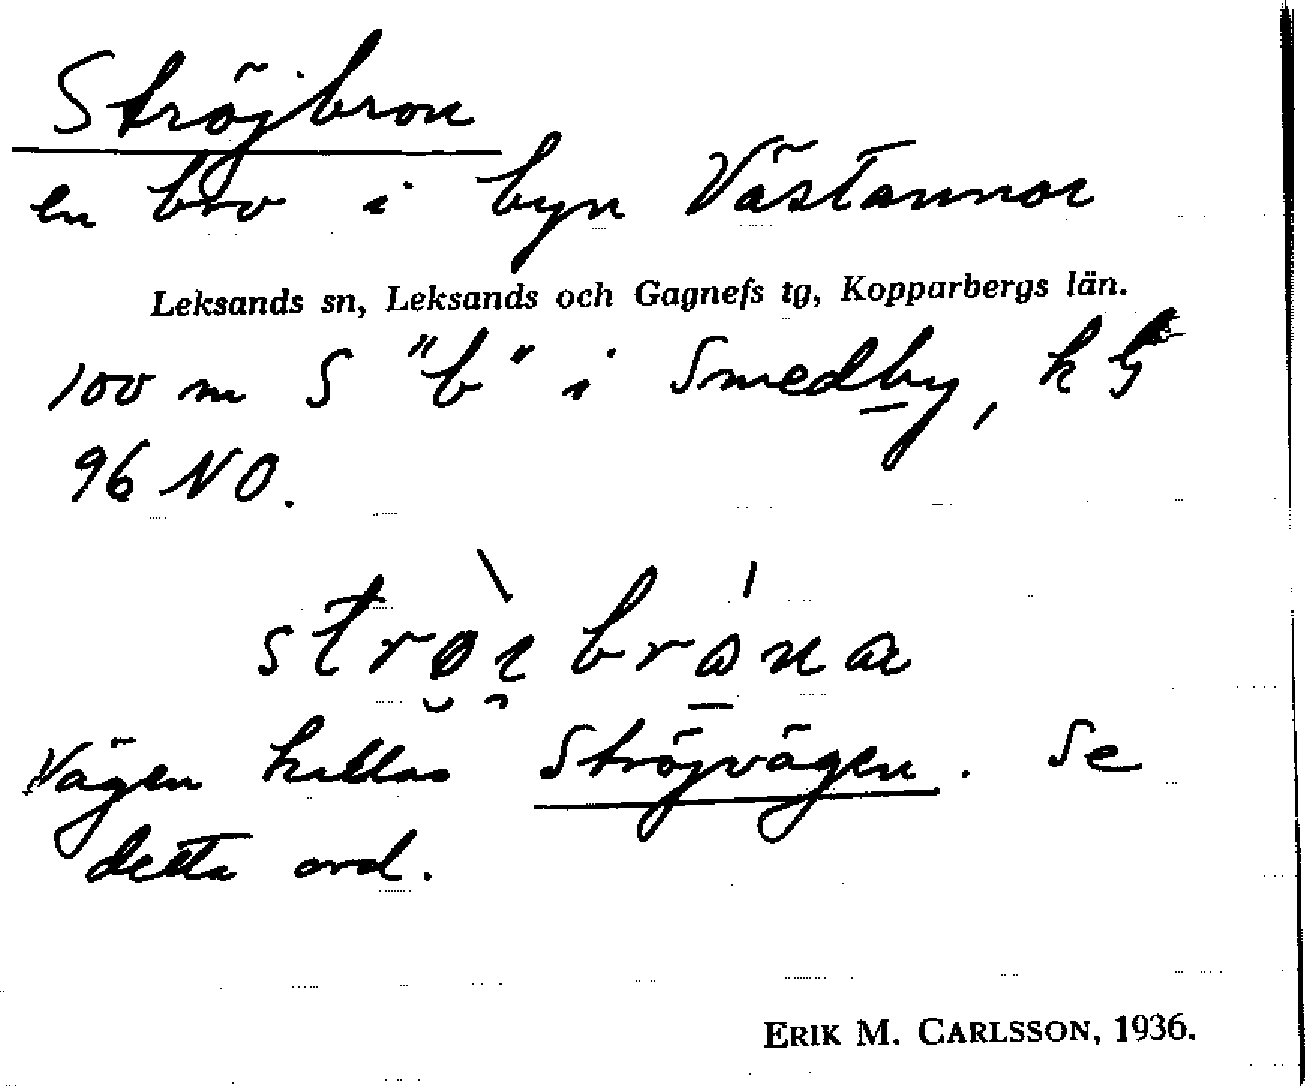 Ströjbron
en bro i byn Västannor
Leksands sn, Leksands och Gagnefs tg, Kopparbergs län.
100 m S "b" i Smedby, k G
96 NO.
Vägen kallas Ströjvägen. Se
detta ord.
ERIK M. CARLSSON, 1936.